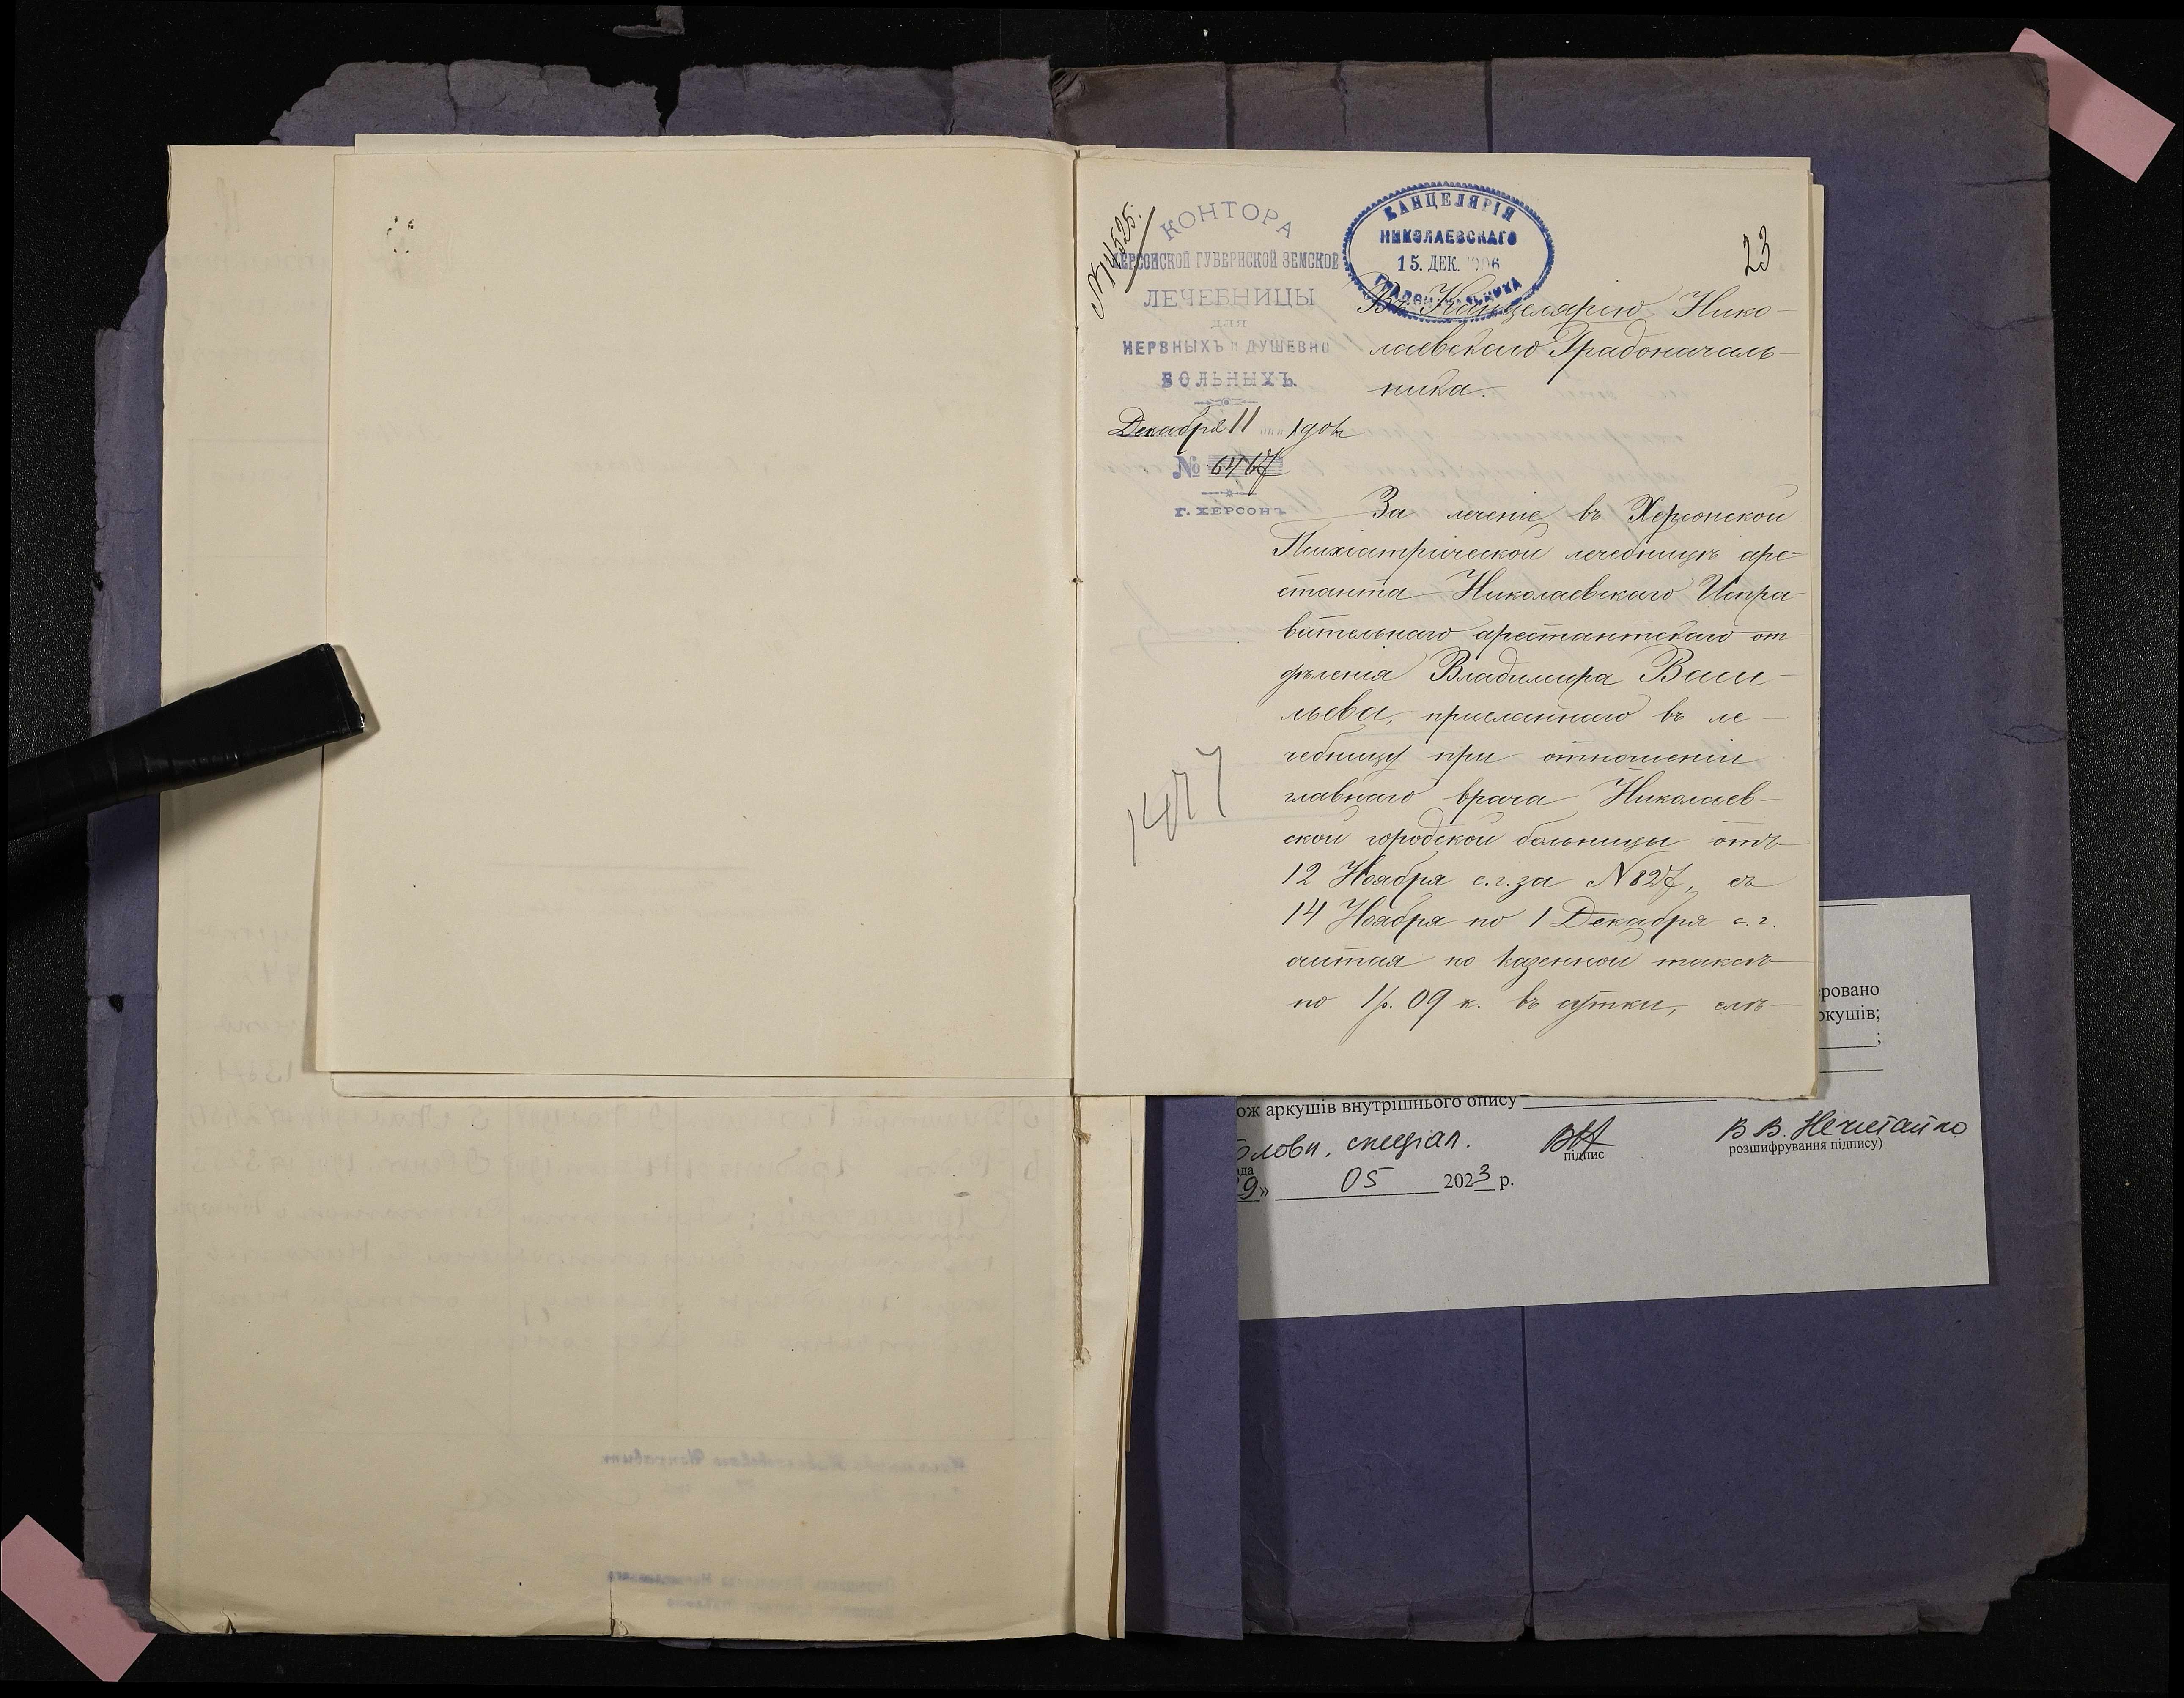 N 14525.
КОНТОРА
ХЕРСОНСКОЙ ГУБЕРНСКОЙ ЗЕМСКОЙ
ЛЕЧЕБНИЦЫ
ДЛЯ
НЕРВНЫХЪ и ДУШЕВНО
БОЛЬНЫХЪ.
Декабря 11 дня 1906
№ 6467
Г. ХЕРСОНЪ
КАНЦЕЛЯРІЯ
НИКОЛАЕВСКАГО
15. ДЕК. 1906
ГРАДОНАЧАЛЬНИКА
23
Въ Канцелярію Нико-
лаевскаго Градоначаль-
ника.
За леченіе въ Херсонской
Психіатрической лечебницѣ аре-
станта Николаевскаго Испра-
вительнаго арестантскаго от-
дѣленія Владимира Васи-
льева, присланнаго въ ле-
чебницу при отношеніи
главнаго врача Николаев-
ской городской больницы отъ
12 Ноября с.г. за N 827, съ
14 Ноября по 1 Декабря с.г.
считая по казенной таксѣ
по 1 р. 09 к. въ сутки, слѣ-
ровано
ркушів;
;
ож аркушів внутрішнього опису
головн. спеціал.
підпис
В В. Нечитайло
розшифрування підпису)
ада
9» 05 2023 р.